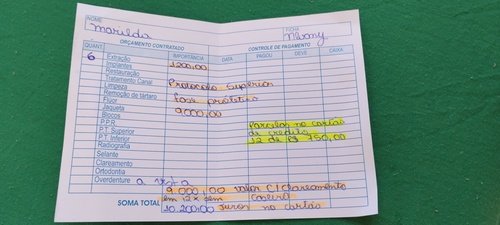 NOME
Marilda
FICHA
ORÇAMENTO CONTRATADO
CONTROLE DE PAGAMENTO
QUANT. IMPORTÂNCIA DATA PAGOU DEVE CAIXA
6 Extração 1200,00
Implantes
Restauração
Tratamento Canal Protocolo Superior
Limpeza
Remoção de tártaro fase protética
Flúor
Jaqueta 9.000,00
Blocos
P.P.R. Parcelas no cartão
PT. Superior de credito
PT. Inferior 12 de R$ 750,00
Radiografia
Selante
Clareamento
Ortodontia
Overdenture
9.000,00 valor C/Clareamento
em 12x sem
SOMA TOTAL 10.200,00 juros no cartão